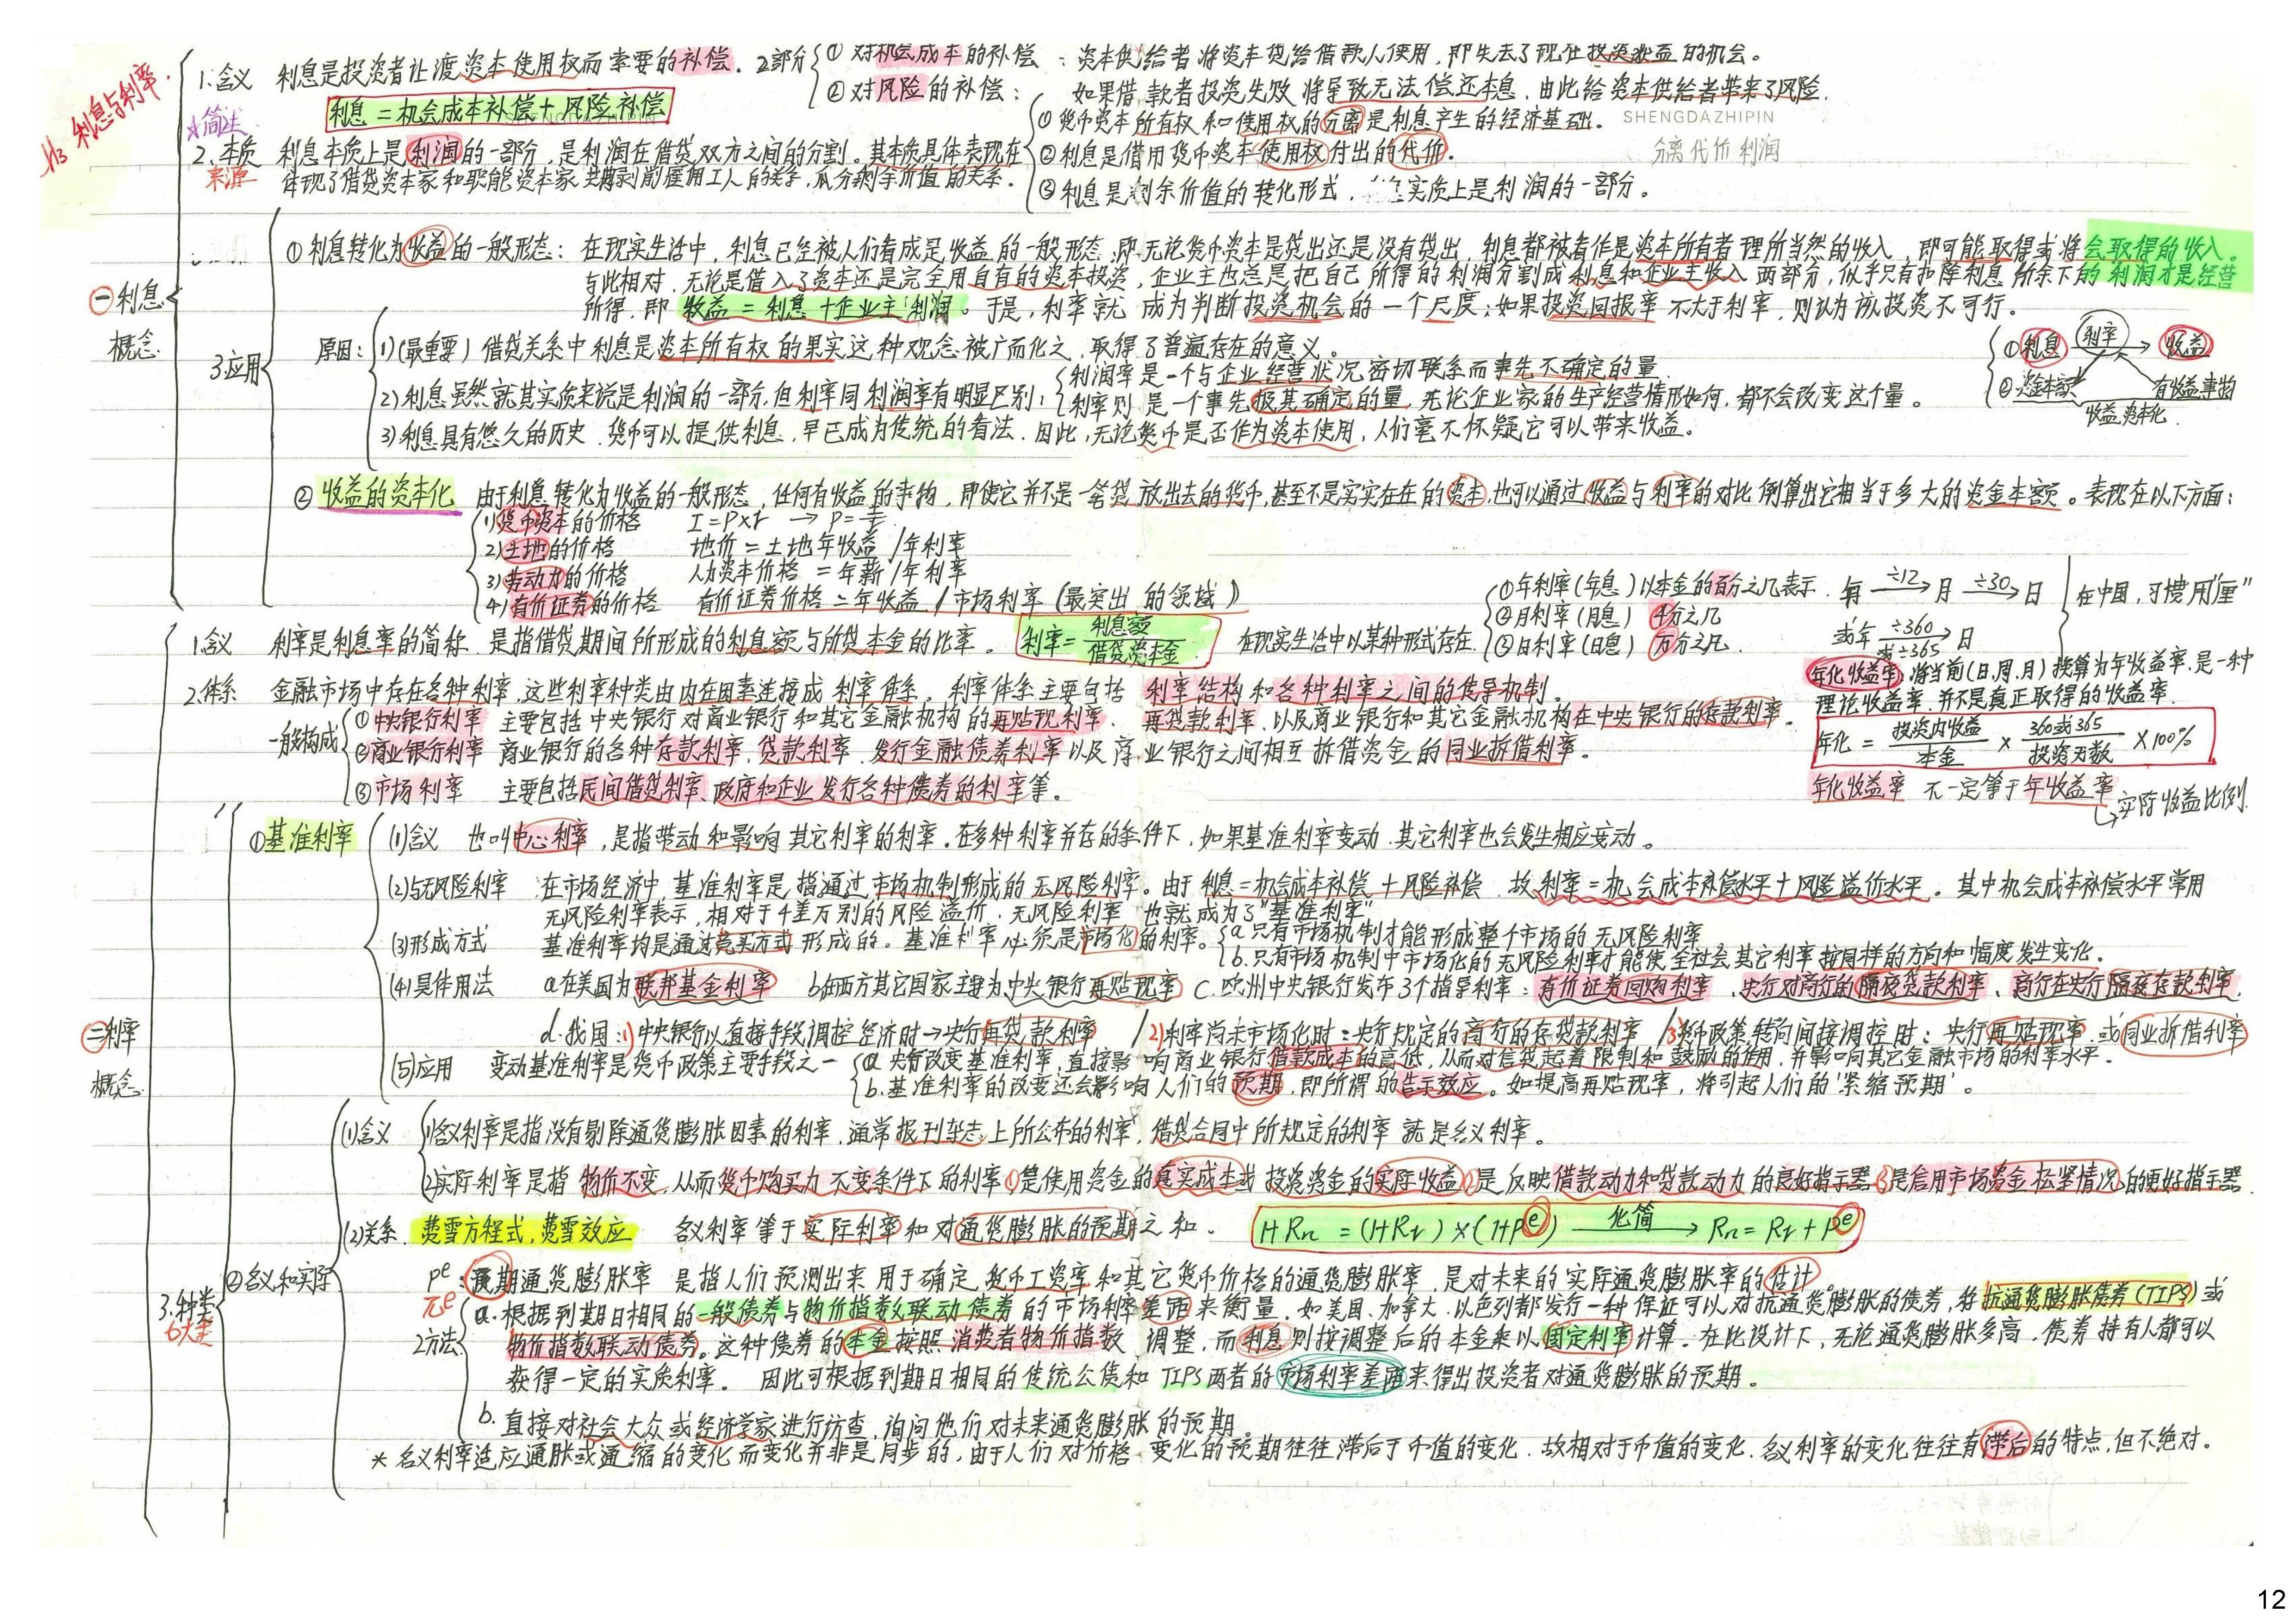 H3 利息与利率.
㊀利息概念
1.含义 利息是投资者让渡资本使用权而索要的补偿. 2部分 ①对机会成本的补偿：资本供给者将资本贷给借款人使用,即失去了现在投资收益的机会。
②对风险的补偿：如果借款者投资失败将导致无法偿还本息,由此给资本供给者带来了风险.
利息=机会成本补偿+风险补偿
SHENGDAZHIPIN
☆简述
2.本质 来源 利息本质上是利润的一部分,是利润在借贷双方之间的分割。其本质具体表现在
体现了借贷资本家和职能资本家共同剥削雇佣工人的关系,瓜分剩余价值的关系.
①货币资本所有权和使用权的分离是利息产生的经济基础.
②利息是借用货币资本使用权付出的代价.
③利息是剩余价值的转化形式, 实质上是利润的一部分。
分离代价利润
3.应用
①利息转化为收益的一般形态：在现实生活中,利息已经被人们看成是收益的一般形态,即无论货币资本是贷出还是没有贷出,利息都被看作是资本所有者理所当然的收入,即可能取得或将会取得的收入.
与此相对,无论是借入了资本还是完全用自有的资本投资,企业主也总是把自己所得的利润分割成利息和企业主收入两部分,似乎只有扣除利息所余下的利润才是经营
所得,即收益=利息+企业主利润。于是,利率就成为判断投资机会的一个尺度;如果投资回报率不大于利率,则认为该投资不可行。
原因：1)(最重要)借贷关系中利息是资本所有权的果实这种观念被广而化之,取得了普遍存在的意义。
2)利息虽然就其实质来说是利润的一部分,但利率同利润率有明显区别：利润率是一个与企业经营状况密切联系而事先不确定的量.
利率则是一个事先极其确定的量,无论企业家的生产经营情形如何,都不会改变这个量。
3)利息具有悠久的历史.货币可以提供利息,早已成为传统的看法.因此,无论货币是否作为资本使用,人们毫不怀疑它可以带来收益。
①利息 利率 → 收益
②资金本额 有收益事物
收益资本化.
②收益的资本化 由于利息转化为收益的一般形态,任何有收益的事物,即使它并不是一笔贷放出去的货币,甚至不是实实在在的资本,也可以通过收益与利率的对比倒算出它相当于多大的资金本额。表现在以下方面：
1)货币资本的价格 I=P×r → P=I/r
2)土地的价格 地价=土地年收益/年利率
3)劳动力的价格 人力资本价格=年薪/年利率
4)有价证券的价格 有价证券价格=年收益/市场利率(最突出的领域)
㊁利率概念
1.含义 利率是利息率的简称.是指借贷期间所形成的利息额与所贷本金的比率。 利率=利息额/借贷资本金 在现实生活中以某种形式存在.
①年利率(年息)以本金的百分之几表示.
②月利率(月息) 千分之几
③日利率(日息) 万分之几.
年 ÷12→ 月 ÷30→ 日
或年 ÷360 或÷365→ 日
在中国,习惯用"厘"
2.体系 金融市场中存在各种利率,这些利率种类由内在因素连接成利率体系,利率体系主要包括利率结构和各种利率之间的传导机制.
一般构成 ①中央银行利率 主要包括中央银行对商业银行和其它金融机构的再贴现利率、再贷款利率,以及商业银行和其它金融机构在中央银行的存款利率.
②商业银行利率 商业银行的各种存款利率、贷款利率、发行金融债券利率以及商业银行之间相互拆借资金的同业拆借利率。
③市场利率 主要包括民间借贷利率、政府和企业发行各种债券的利率等。
年化收益率,将当前(日,周,月)换算为年收益率.是一种
理论收益率,并不是真正取得的收益率.
年化=投资内收益/本金×360或365/投资天数×100%
年化收益率不一定等于年收益率
↳实际收益比例.
3.种类 6大类
①基准利率
(1)含义 也叫中心利率,是指带动和影响其它利率的利率.在多种利率并存的条件下,如果基准利率变动.其它利率也会发生相应变动。
(2)与无风险利率 在市场经济中,基准利率是指通过市场机制形成的无风险利率。由于利息=机会成本补偿+风险补偿.故利率=机会成本补偿水平+风险溢价水平。其中机会成本补偿水平常用
无风险利率表示,相对于千差万别的风险溢价.无风险利率也就成为了"基准利率"
(3)形成方式 基准利率均是通过竞买方式形成的。基准利率必须是市场化的利率。 a.只有市场机制才能形成整个市场的无风险利率
b.只有市场机制中市场化的无风险利率才能使全社会其它利率按同样的方向和幅度发生变化.
(4)具体用法 a.在美国为联邦基金利率 b.在西方其它国家主要为中央银行再贴现率 c.欧洲中央银行发布3个指导利率：有价证券回购利率、央行对商行的隔夜贷款利率、商行在央行隔夜存款利率.
d.我国：1)中央银行以直接手段调控经济时→央行再贷款利率 /2)利率尚未市场化时：央行规定的商行的存贷款利率 /3)货币政策转向间接调控时：央行再贴现率或同业拆借利率
(5)应用 变动基准利率是货币政策主要手段之一 a.央行改变基准利率,直接影响商业银行借款成本的高低,从而对信贷起着限制和鼓励的作用,并影响其它金融市场的利率水平.
b.基准利率的改变还会影响人们的预期,即所谓的告示效应。如提高再贴现率,将引起人们的'紧缩预期'。
②名义和实际
(1)含义 1)名义利率是指没有剔除通货膨胀因素的利率,通常报刊杂志上所公布的利率,借贷合同中所规定的利率就是名义利率。
2)实际利率是指物价不变,从而货币购买力不变条件下的利率①是使用资金的真实成本或投资资金的实际收益②是反映借款动力和贷款动力的良好指示器③是信用市场资金松紧情况的更好指示器.
(2)关系.费雪方程式,费雪效应 名义利率等于实际利率和对通货膨胀的预期之和。 1+Rn=(1+Rr)×(1+Pe) 化简→ Rn=Rr+Pe
Pe：预期通货膨胀率 是指人们预测出来用于确定货币工资率和其它货币价格的通货膨胀率,是对未来的实际通货膨胀率的估计.
πe
2方法 a.根据到期日相同的一般债券与物价指数联动债券的市场利率差距来衡量.如美国、加拿大.以色列都发行一种保证可以对抗通货膨胀的债券,称抗通货膨胀债券(TIPS)或
物价指数联动债券。这种债券的本金按照消费者物价指数调整,而利息则按调整后的本金来以固定利率计算.在此设计下,无论通货膨胀多高,债券持有人都可以
获得一定的实质利率。因此可根据到期日相同的传统公债和TIPS两者的市场利率差距来得出投资者对通货膨胀的预期。
b.直接对社会大众或经济学家进行访查,询问他们对未来通货膨胀的预期.
*名义利率适应通胀或通缩的变化而变化并非是同步的,由于人们对价格变化的预期往往滞后于币值的变化.故相对于币值的变化.名义利率的变化往往有滞后的特点,但不绝对.
12